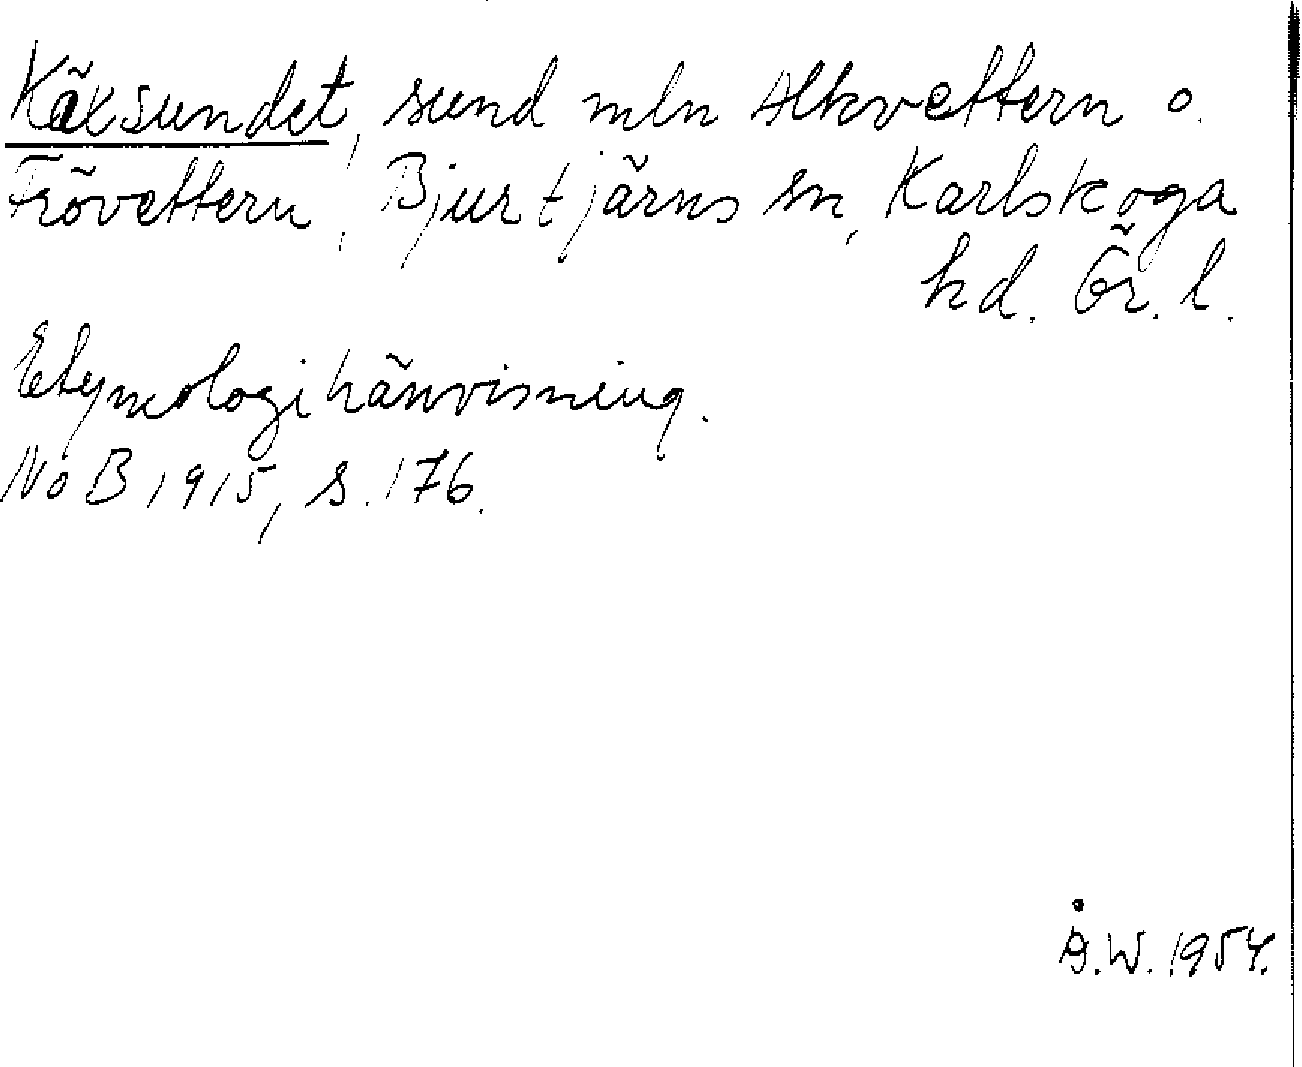 Käxsundet, sund mln Alkvettern o.
Frövettern, Bjurtjärns sn, Karlskoga
hd. Ör. l.
Etymologihänvisning.
NoB 1915, s. 176.
Å.W. 1954.